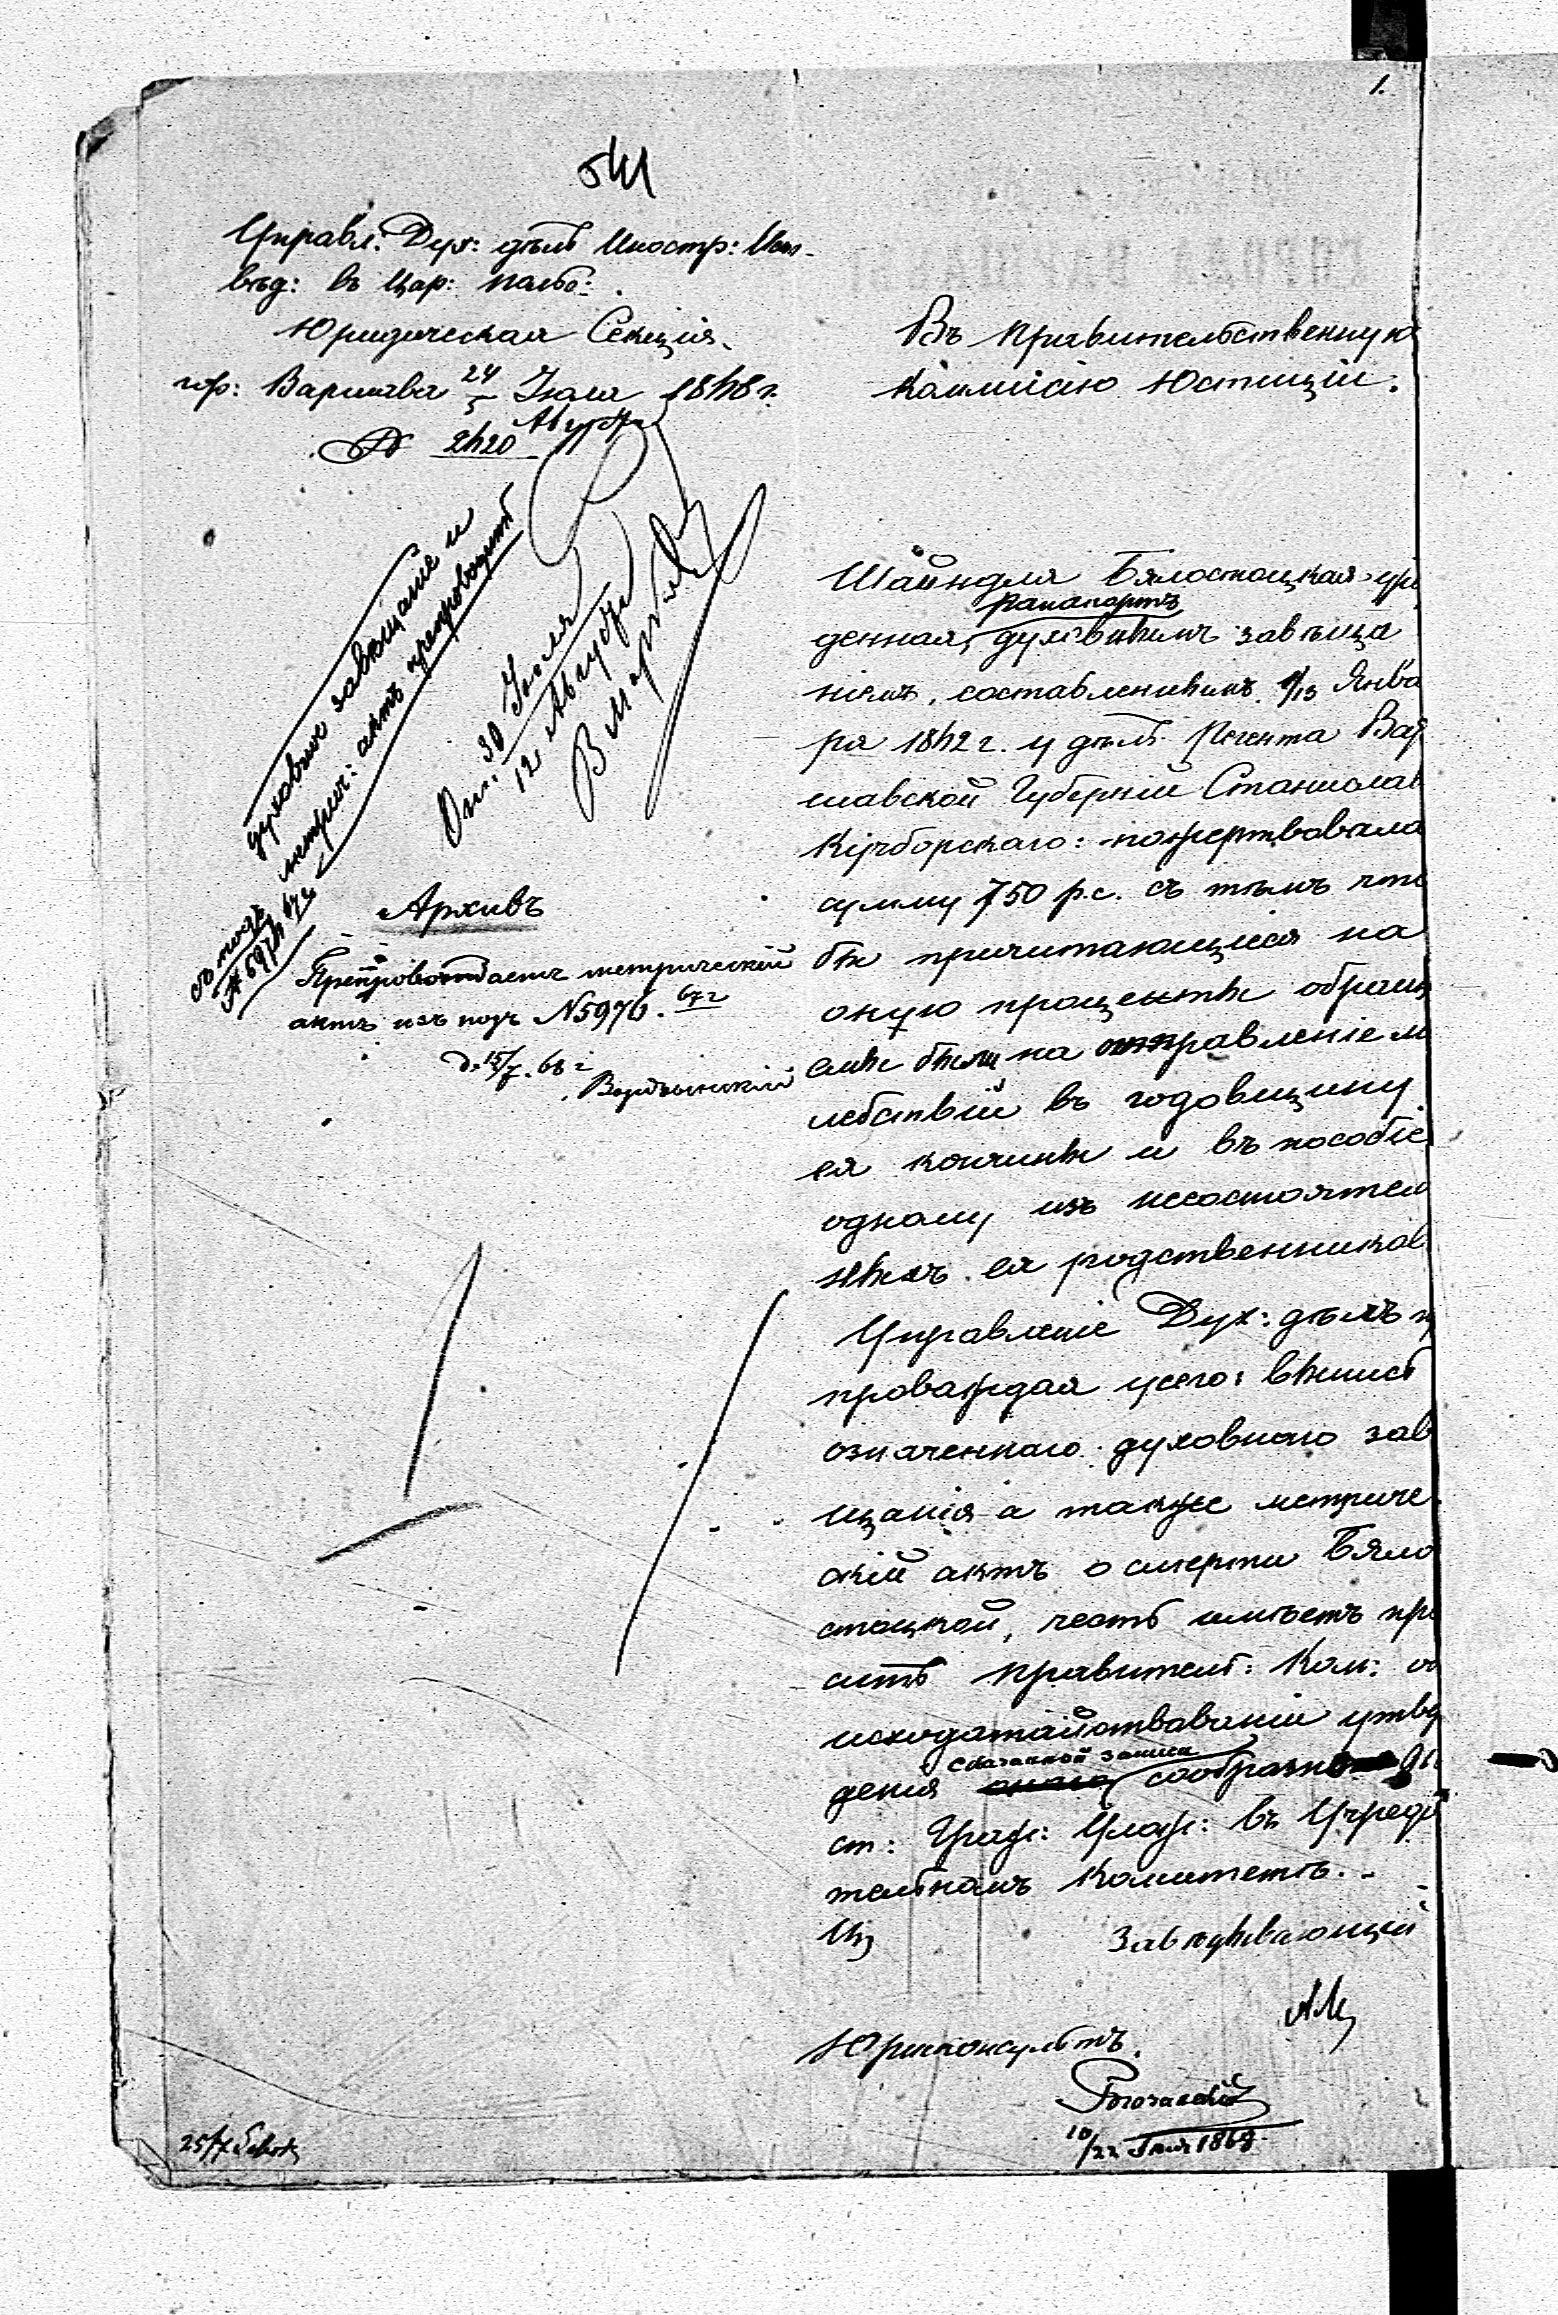 1.
541
Управл: Дух: дѣлъ Иностр: Исп-
вѣд: въ Цар: Польс:
Юридическая Секція.
гор: Варшава 24/5 Іюля/Августа 1868 г.
№ 2620
Въ Правительственную
Коммисію Юстиціи.
духовное завѣщаніе и
метрич: актъ препроводить
съ подъ
№ 5976 67 г.
30 Іюля
12 Августа
Архивъ
Препровождаетъ метрическій
актъ изъ подъ № 5976. 67 г
д. 15/7. 68 г
Шайндля Бялостоцкая уро
Рапапортъ
жденная, духовнымъ завѣща
ніемъ, составленнымъ 1/13 Янва
ря 1862 г. у дѣлъ Регента Вар
шавской Губерніи Станислав
Кучборскаго: пожертвовала
сумму 750 р.с. съ тѣмъ что
бы причитающіеся на
оную проценты обраща
емы были на отправленіе м
лебствій въ годовщину
ея кончины и въ пособіе
одному изъ несостоятел
ныхъ ея родственников
Управленіе Дух: дѣлъ п
провождая у сего: выпись
означеннаго духовнаго зав
щанія а также метриче
скій актъ о смерти Бяло
стоцкой, честь имѣетъ про
сить Правител: Ком: о
исходатайствованіи утвер
сказанной записи
денія онаго сообразно 91
ст: Граж: Улож: въ Учреди
тельномъ Комитетѣ.
Завѣдывающій
Юрисконсультъ.
10/22 Іюля 1868
25/7